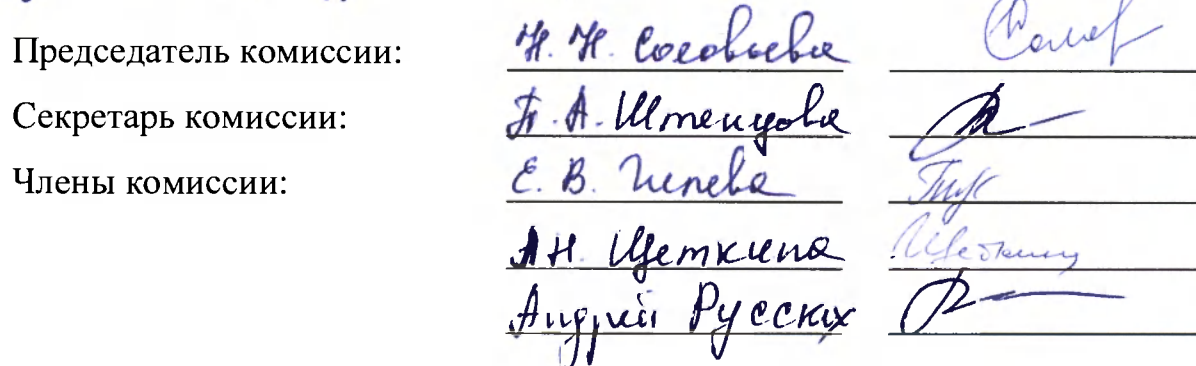 Председатель комиссии: Н. Н. Соловьева
Секретарь комиссии: Т. А. Штенцова
Члены комиссии: Е. В.
А Н. Щеткина Щеткина
Андрей Русских